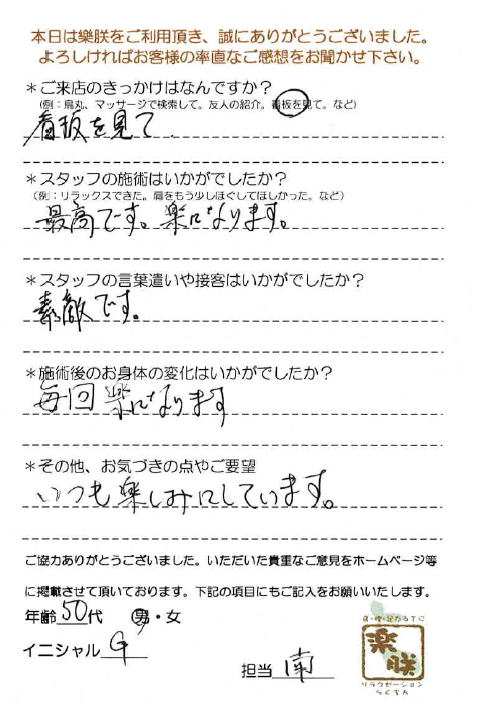 本日は樂朕をご利用頂き、誠にありがとうございました。
よろしければお客様の率直なご感想をお聞かせ下さい。
＊ご来店のきっかけはなんですか？
（例：烏丸、マッサージで検索して。友人の紹介。看板を見て。など）
看板を見て．
＊スタッフの施術はいかがでしたか？
（例：リラックスできた。肩をもう少しほぐしてほしかった。など）
最高です。楽になります。
＊スタッフの言葉遣いや接客はいかがでしたか？
素敵です。
＊施術後のお身体の変化はいかがでしたか？
毎回 楽になります
＊その他、お気づきの点やご要望
いつも楽しみにしています。
ご協力ありがとうございました。いただいた貴重なご意見をホームページ等
に掲載させて頂いております。下記の項目にもご記入をお願いいたします。
年齢 50代 男・女
イニシャル G
担当 南
楽朕
リラクゼーション
らくちん